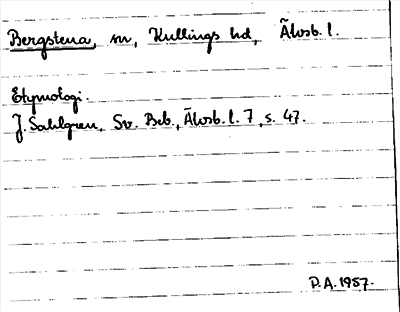 Bergstena, sn, Kullings hd, Älvsb. l.
Etymologi.
J. Sahlgren, Sv. Beb., Älvsb. l. 7, s. 47.
P.A. 1987.